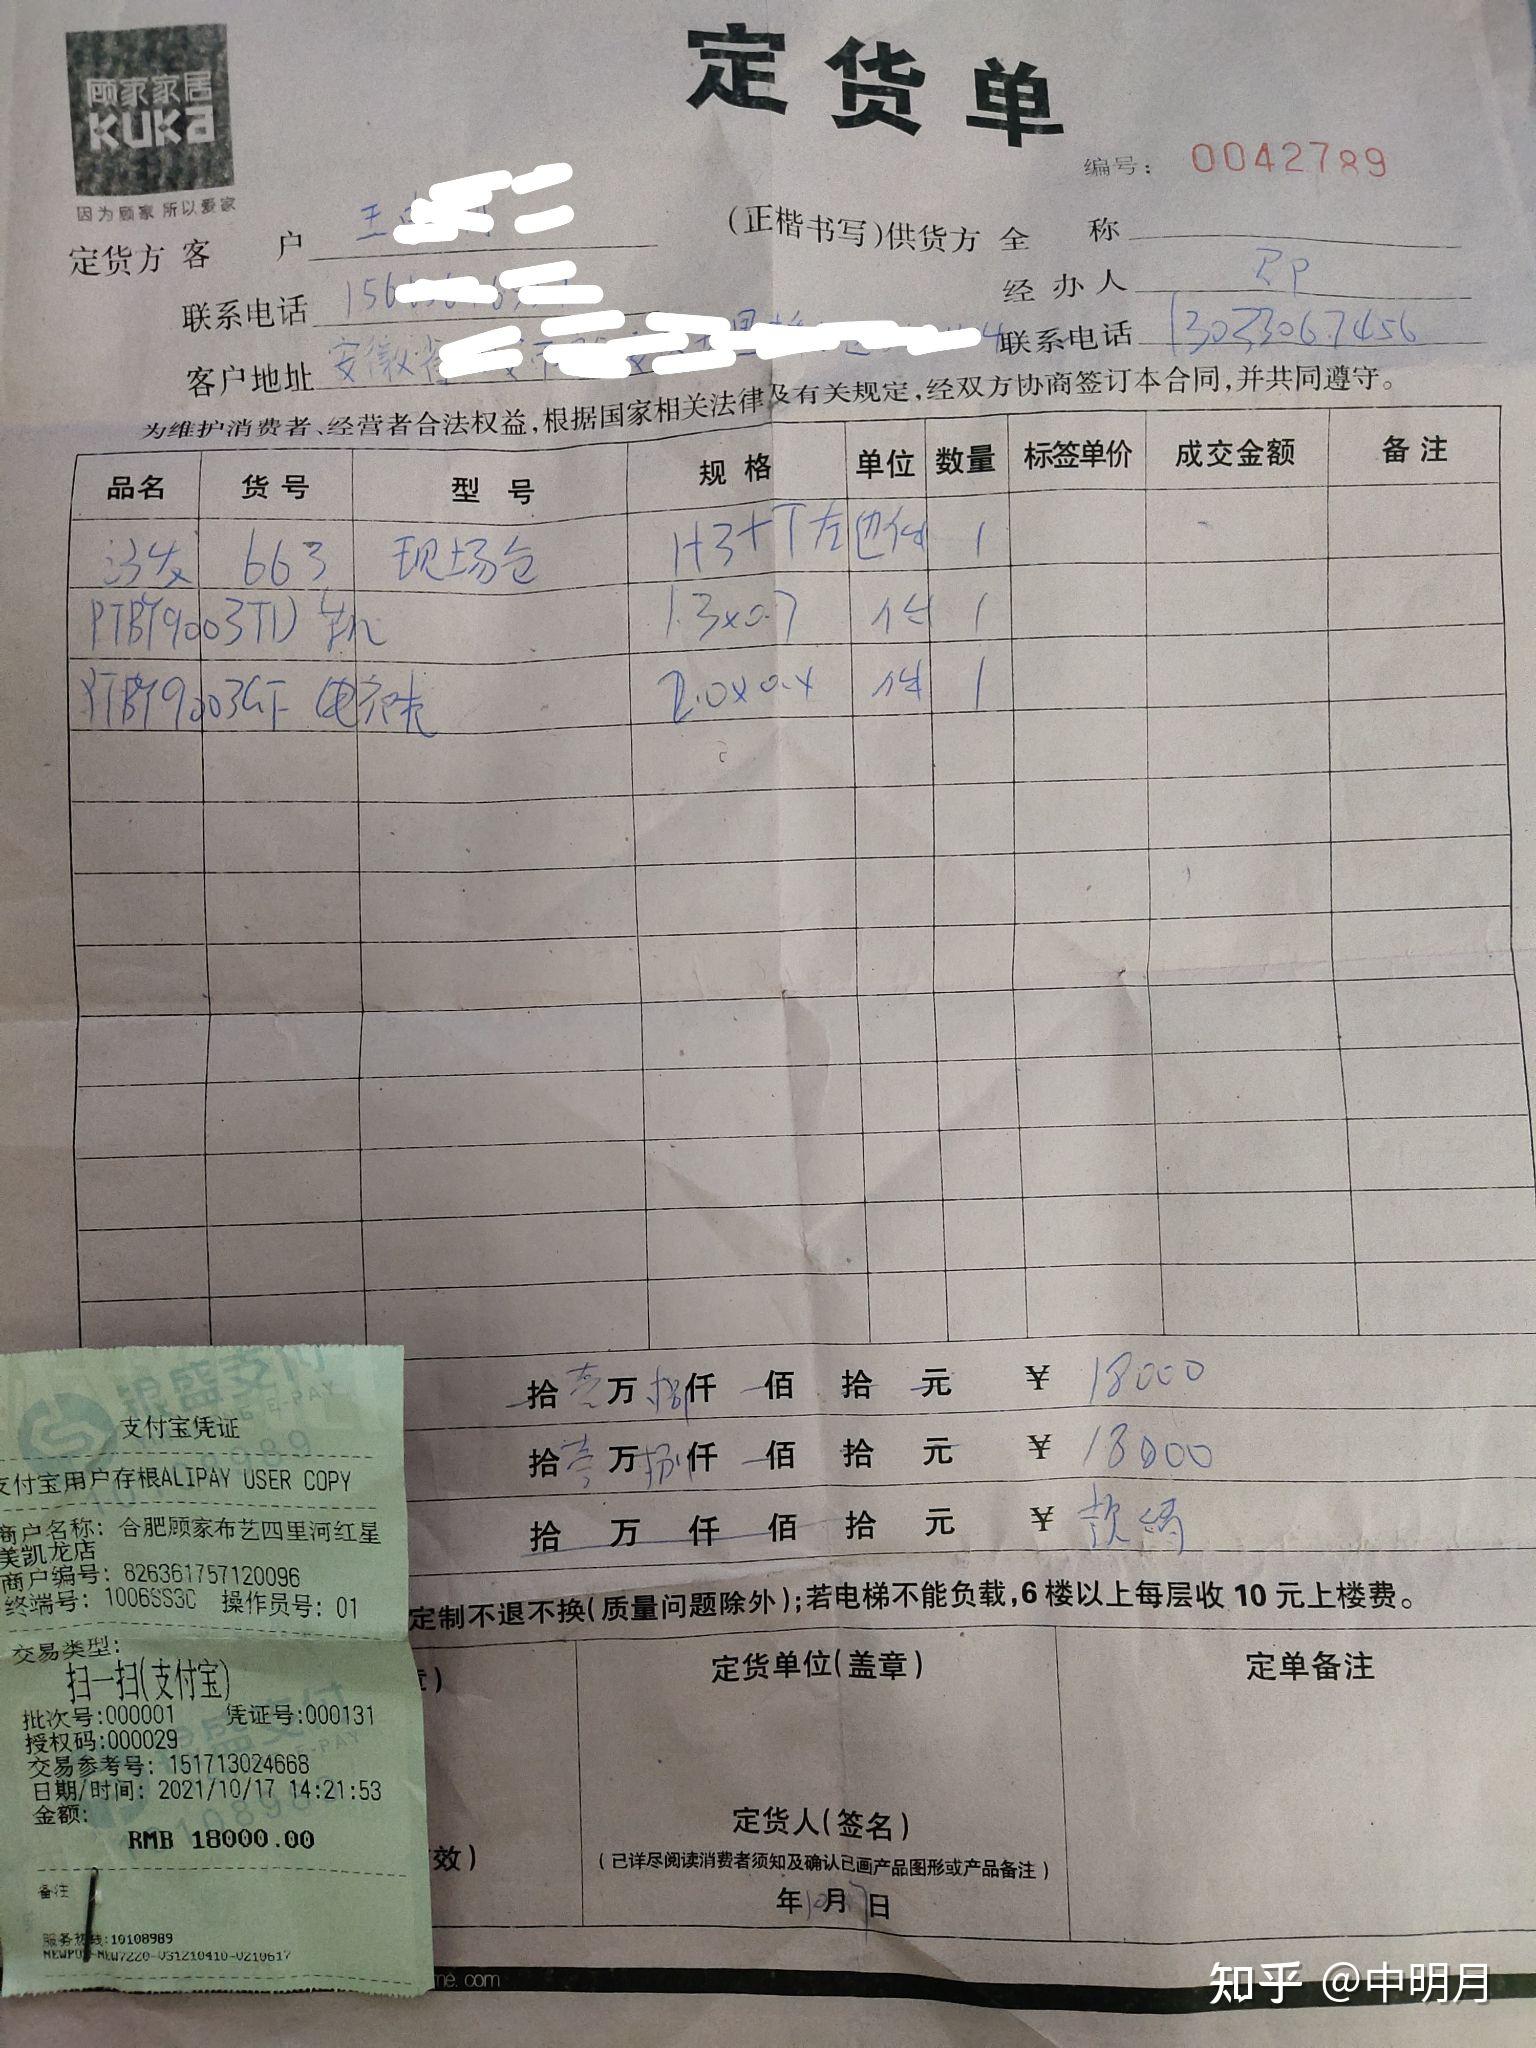 顾家家居
KUKa
因为顾家 所以爱家
定货单
编号: 0042789
定货方 客 户 王
(正楷书写)供货方 全 称
联系电话 156
经办人
客户地址 安徽省
联系电话 13023067456
为维护消费者、经营者合法权益,根据国家相关法律及有关规定,经双方协商签订本合同,并共同遵守。
品名 货号 型号 规格 单位 数量 标签单价 成交金额 备注
沙发 663 现场仓 1+3+T左 边件 1
PTBY9003TD 1.3x0.7 件 1
PTBY9003GF 电视柜 2.0x0.4 件 1
拾壹万捌仟 佰 拾 元 ¥ 18000
拾壹万捌仟 佰 拾 元 ¥ 18000
拾 万 仟 佰 拾 元 ¥ 款清
定制不退不换(质量问题除外);若电梯不能负载,6楼以上每层收10元上楼费。
章)
定货单位(盖章)
定单备注
定货人(签名)
(已详尽阅读消费者须知及确认已画产品图形或产品备注)
效)
年10月17日
me.com
银盛支付
E-PAY
支付宝凭证
支付宝用户存根ALIPAY USER COPY
商户名称: 合肥顾家布艺四里河红星
美凯龙店
商户编号: 826361757120096
终端号: 1006SS3C 操作员号: 01
交易类型:
扫一扫(支付宝)
批次号:000001 凭证号:000131
授权码:000029
交易参考号: 151713024668
日期/时间: 2021/10/17 14:21:53
金额:
RMB 18000.00
备注
服务热线:10108989
知乎 @申明月